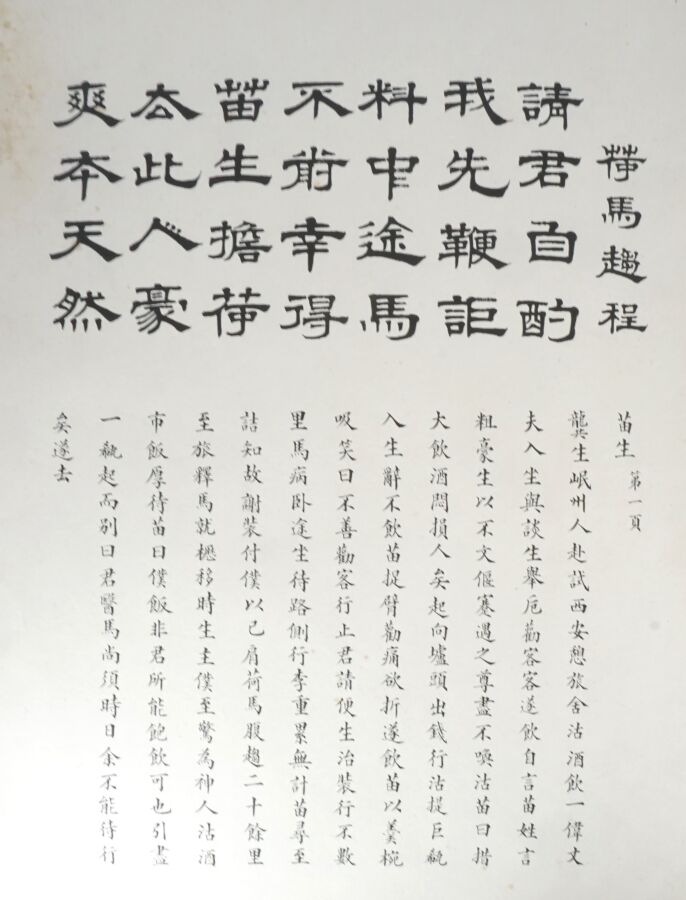 荷馬趨程
請君自酌
我先鞭詎
料中途馬
不前幸得
苗生擔荷
去此人豪
爽本天然
苗生 第一頁
龔生岷州人赴試西安憩旅舍沽酒飲一偉丈
夫入坐與談生舉卮勸客客遂飲自言苗姓言
粗豪生以不文偃蹇遇之尊盡不喚沽苗曰措
大飲酒悶損人矣起向壚頭出錢行沽提巨瓻
入生辭不飲苗捉臂勸痛欲折遂飲苗以羹椀
吸笑曰不善勸客行止君請便生治裝行不數
里馬病臥途坐待路側行李重累無計苗尋至
詰知故謝裝付僕以己肩荷馬腹趨二十餘里
至旅釋馬就櫪移時生主僕至驚為神人沽酒
市飯厚待苗曰僕飯非君所能飽飲可也引盡
一瓻起而別曰君醫馬尚須時日余不能待行
矣遂去